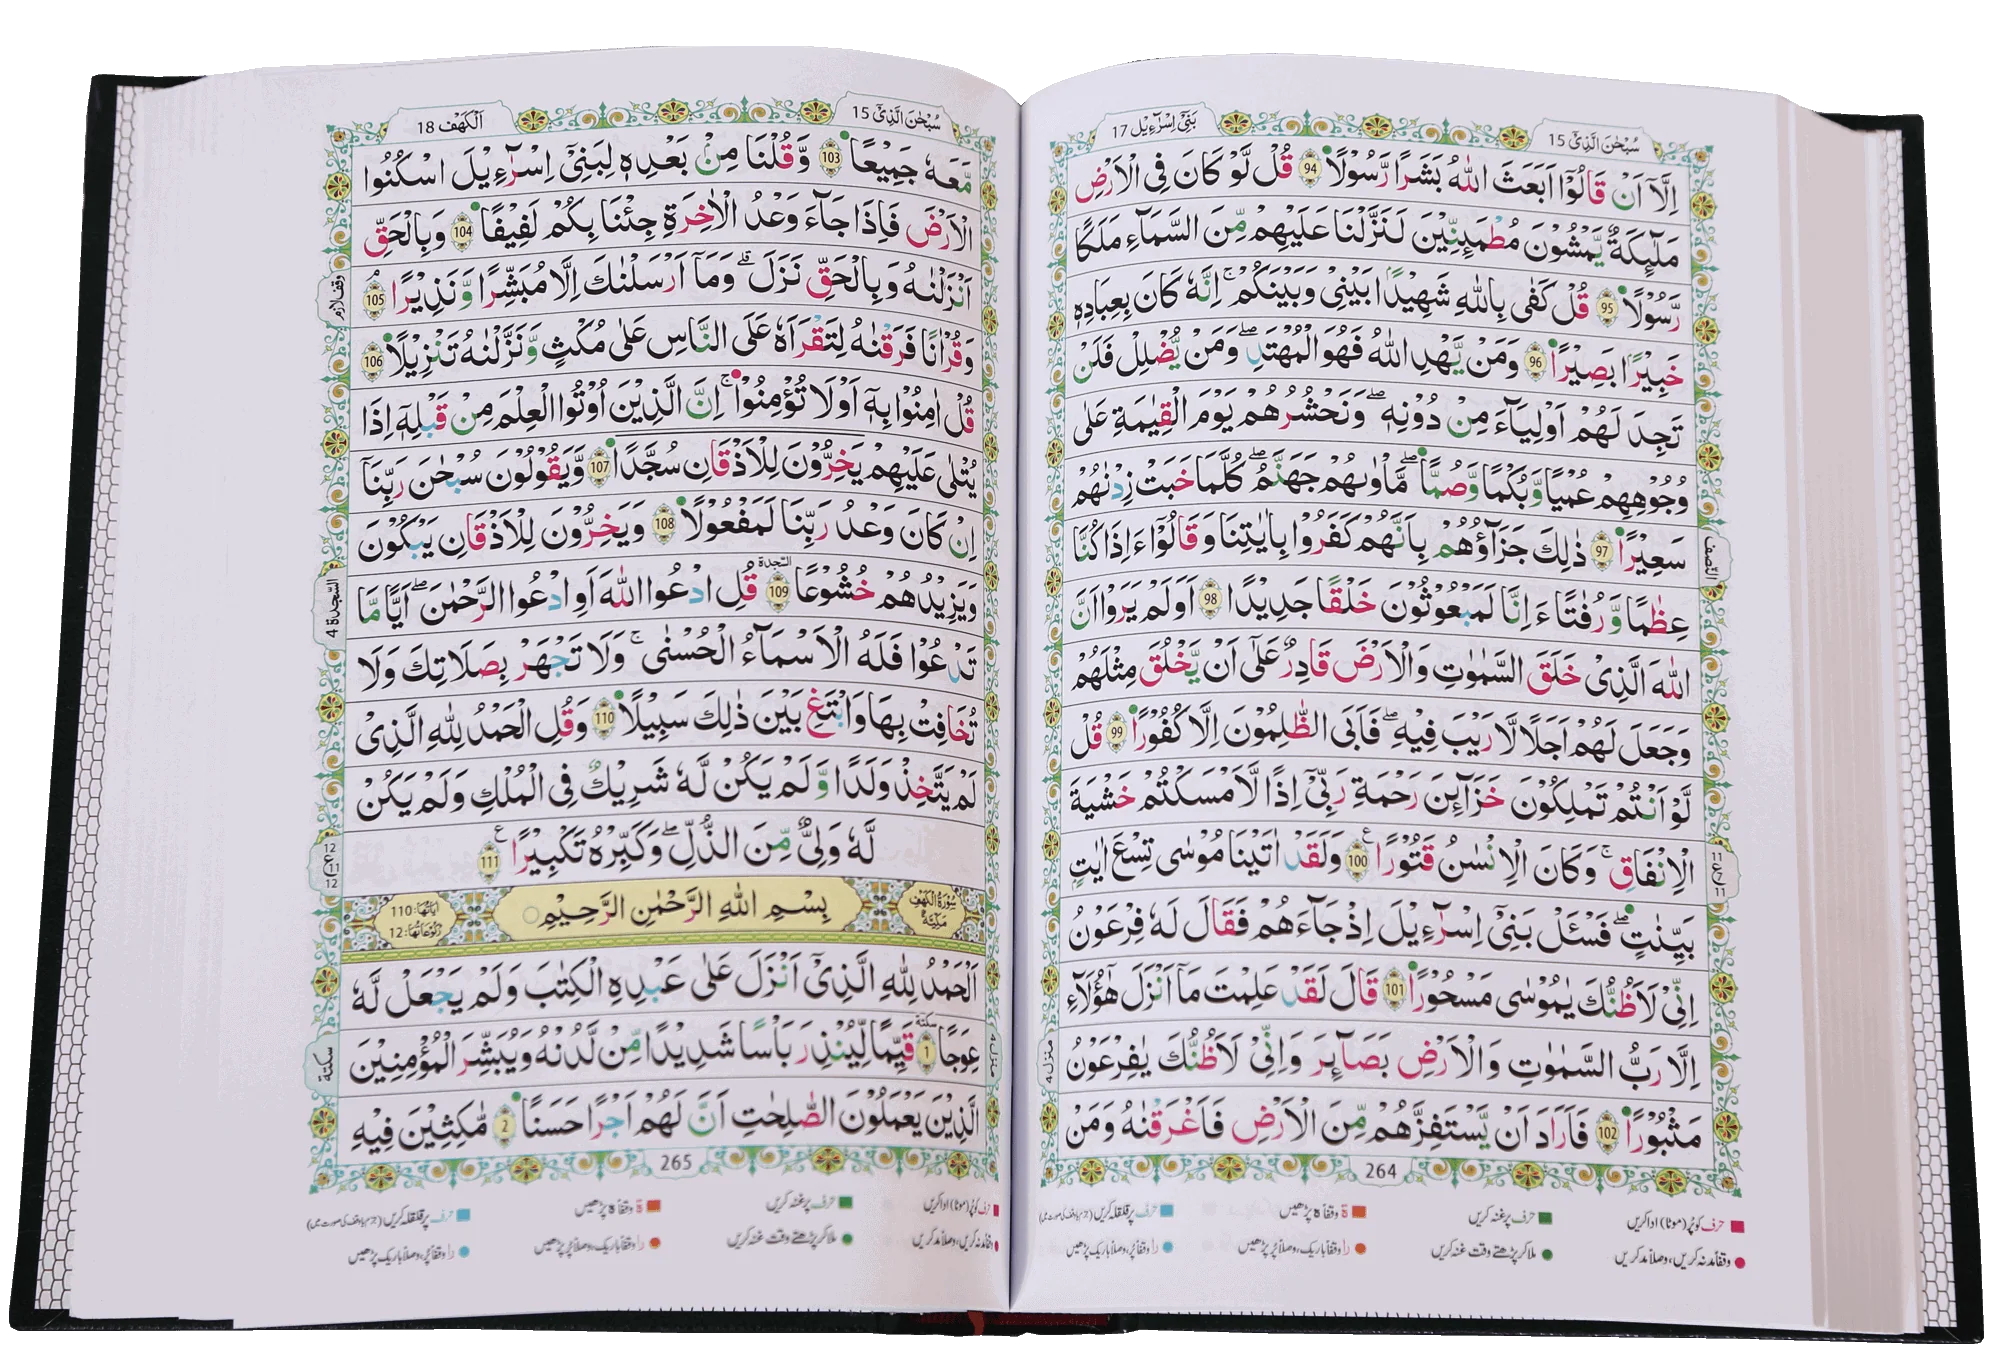 سُبْحٰنَ الَّذِیْۤ 15
بَنِیْۤ اِسْرَآءِیْل 17
اِلَّاۤ اَنْ قَالُوْۤا اَبَعَثَ اللّٰهُ بَشَرًا رَّسُوْلًا 94 قُلْ لَّوْ كَانَ فِی الْاَرْضِ
مَلٰٓىِٕكَةٌ یَّمْشُوْنَ مُطْمَىِٕنِّیْنَ لَنَزَّلْنَا عَلَیْهِمْ مِّنَ السَّمَآءِ مَلَكًا
رَّسُوْلًا 95 قُلْ كَفٰی بِاللّٰهِ شَهِیْدًۢا بَیْنِیْ وَبَیْنَكُمْ ؕ اِنَّهٗ كَانَ بِعِبَادِهٖ
خَبِیْرًۢا بَصِیْرًا 96 وَمَنْ یَّهْدِ اللّٰهُ فَهُوَ الْمُهْتَدِ ۚ وَمَنْ یُّضْلِلْ فَلَنْ
تَجِدَ لَهُمْ اَوْلِیَآءَ مِنْ دُوْنِهٖ ؕ وَنَحْشُرُهُمْ یَوْمَ الْقِیٰمَةِ عَلٰی
وُجُوْهِهِمْ عُمْیًا وَّبُكْمًا وَّصُمًّا ؕ مَّاْوٰىهُمْ جَهَنَّمُ ؕ كُلَّمَا خَبَتْ زِدْنٰهُمْ
سَعِیْرًا 97 ذٰلِكَ جَزَآؤُهُمْ بِاَنَّهُمْ كَفَرُوْا بِاٰیٰتِنَا وَقَالُوْۤا ءَاِذَا كُنَّا
عِظٰمًا وَّرُفٰتًا ءَاِنَّا لَمَبْعُوْثُوْنَ خَلْقًا جَدِیْدًا 98 اَوَلَمْ یَرَوْا اَنَّ
اللّٰهَ الَّذِیْ خَلَقَ السَّمٰوٰتِ وَالْاَرْضَ قَادِرٌ عَلٰۤی اَنْ یَّخْلُقَ مِثْلَهُمْ
وَجَعَلَ لَهُمْ اَجَلًا لَّا رَیْبَ فِیْهِ ؕ فَاَبَی الظّٰلِمُوْنَ اِلَّا كُفُوْرًا 99 قُلْ
لَّوْ اَنْتُمْ تَمْلِكُوْنَ خَزَآىِٕنَ رَحْمَةِ رَبِّیْۤ اِذًا لَّاَمْسَكْتُمْ خَشْیَةَ
الْاِنْفَاقِ ؕ وَكَانَ الْاِنْسَانُ قَتُوْرًا 100 وَلَقَدْ اٰتَیْنَا مُوْسٰی تِسْعَ اٰیٰتٍۭ
بَیِّنٰتٍ فَسْـَٔلْ بَنِیْۤ اِسْرَآءِیْلَ اِذْ جَآءَهُمْ فَقَالَ لَهٗ فِرْعَوْنُ
اِنِّیْ لَاَظُنُّكَ یٰمُوْسٰی مَسْحُوْرًا 101 قَالَ لَقَدْ عَلِمْتَ مَاۤ اَنْزَلَ هٰۤؤُلَآءِ
اِلَّا رَبُّ السَّمٰوٰتِ وَالْاَرْضِ بَصَآىِٕرَ وَاِنِّیْ لَاَظُنُّكَ یٰفِرْعَوْنُ
مَثْبُوْرًا 102 فَاَرَادَ اَنْ یَّسْتَفِزَّهُمْ مِّنَ الْاَرْضِ فَاَغْرَقْنٰهُ وَمَنْ
النصف
منزل 4
264
حرف کو پُر (موٹا) ادا کریں
حرف پر غنہ کریں
ة وقفاً ہ پڑھیں
حرف پر قلقلہ کریں
وقفاً مد نہ کریں، وصلاً مد کریں
ملا کر پڑھتے وقت غنہ کریں
را وقفاً باریک، وصلاً پُر پڑھیں
را وقفاً پُر، وصلاً باریک پڑھیں
سُبْحٰنَ الَّذِیْۤ 15
اَلْكَهْف 18
مَّعَهٗ جَمِیْعًا 103 وَّقُلْنَا مِنْۢ بَعْدِهٖ لِبَنِیْۤ اِسْرَآءِیْلَ اسْكُنُوا
الْاَرْضَ فَاِذَا جَآءَ وَعْدُ الْاٰخِرَةِ جِئْنَا بِكُمْ لَفِیْفًا 104 وَبِالْحَقِّ
اَنْزَلْنٰهُ وَبِالْحَقِّ نَزَلَ ؕ وَمَاۤ اَرْسَلْنٰكَ اِلَّا مُبَشِّرًا وَّنَذِیْرًا 105
وَقُرْاٰنًا فَرَقْنٰهُ لِتَقْرَاَهٗ عَلَی النَّاسِ عَلٰی مُكْثٍ وَّنَزَّلْنٰهُ تَنْزِیْلًا 106
قُلْ اٰمِنُوْا بِهٖۤ اَوْ لَا تُؤْمِنُوْا ؕ اِنَّ الَّذِیْنَ اُوْتُوا الْعِلْمَ مِنْ قَبْلِهٖۤ اِذَا
یُتْلٰی عَلَیْهِمْ یَخِرُّوْنَ لِلْاَذْقَانِ سُجَّدًا 107 وَّیَقُوْلُوْنَ سُبْحٰنَ رَبِّنَاۤ
اِنْ كَانَ وَعْدُ رَبِّنَا لَمَفْعُوْلًا 108 وَیَخِرُّوْنَ لِلْاَذْقَانِ یَبْكُوْنَ
وَیَزِیْدُهُمْ خُشُوْعًا السجدة 109 قُلِ ادْعُوا اللّٰهَ اَوِ ادْعُوا الرَّحْمٰنَ ؕ اَیًّا مَّا
تَدْعُوْا فَلَهُ الْاَسْمَآءُ الْحُسْنٰی ۚ وَلَا تَجْهَرْ بِصَلَاتِكَ وَلَا
تُخَافِتْ بِهَا وَابْتَغِ بَیْنَ ذٰلِكَ سَبِیْلًا 110 وَقُلِ الْحَمْدُ لِلّٰهِ الَّذِیْ
لَمْ یَتَّخِذْ وَلَدًا وَّلَمْ یَكُنْ لَّهٗ شَرِیْكٌ فِی الْمُلْكِ وَلَمْ یَكُنْ
لَّهٗ وَلِیٌّ مِّنَ الذُّلِّ وَكَبِّرْهُ تَكْبِیْرًا 111
سُوْرَةُ الْكَهْفِ مَكِّیَّةٌ
بِسْمِ اللّٰهِ الرَّحْمٰنِ الرَّحِیْمِ
اٰیَاتُهَا: 110
رُكُوْعَاتُهَا: 12
اَلْحَمْدُ لِلّٰهِ الَّذِیْۤ اَنْزَلَ عَلٰی عَبْدِهِ الْكِتٰبَ وَلَمْ یَجْعَلْ لَّهٗ
عِوَجًا سكتة 1 قَیِّمًا لِّیُنْذِرَ بَاْسًا شَدِیْدًا مِّنْ لَّدُنْهُ وَیُبَشِّرَ الْمُؤْمِنِیْنَ
الَّذِیْنَ یَعْمَلُوْنَ الصّٰلِحٰتِ اَنَّ لَهُمْ اَجْرًا حَسَنًا 2 مّٰكِثِیْنَ فِیْهِ
وقف لازم
السجدة 4
سكتة
منزل 4
265
حرف کو پُر (موٹا) ادا کریں
حرف پر غنہ کریں
ة وقفاً ہ پڑھیں
حرف پر قلقلہ کریں
وقفاً مد نہ کریں، وصلاً مد کریں
ملا کر پڑھتے وقت غنہ کریں
را وقفاً باریک، وصلاً پُر پڑھیں
را وقفاً پُر، وصلاً باریک پڑھیں